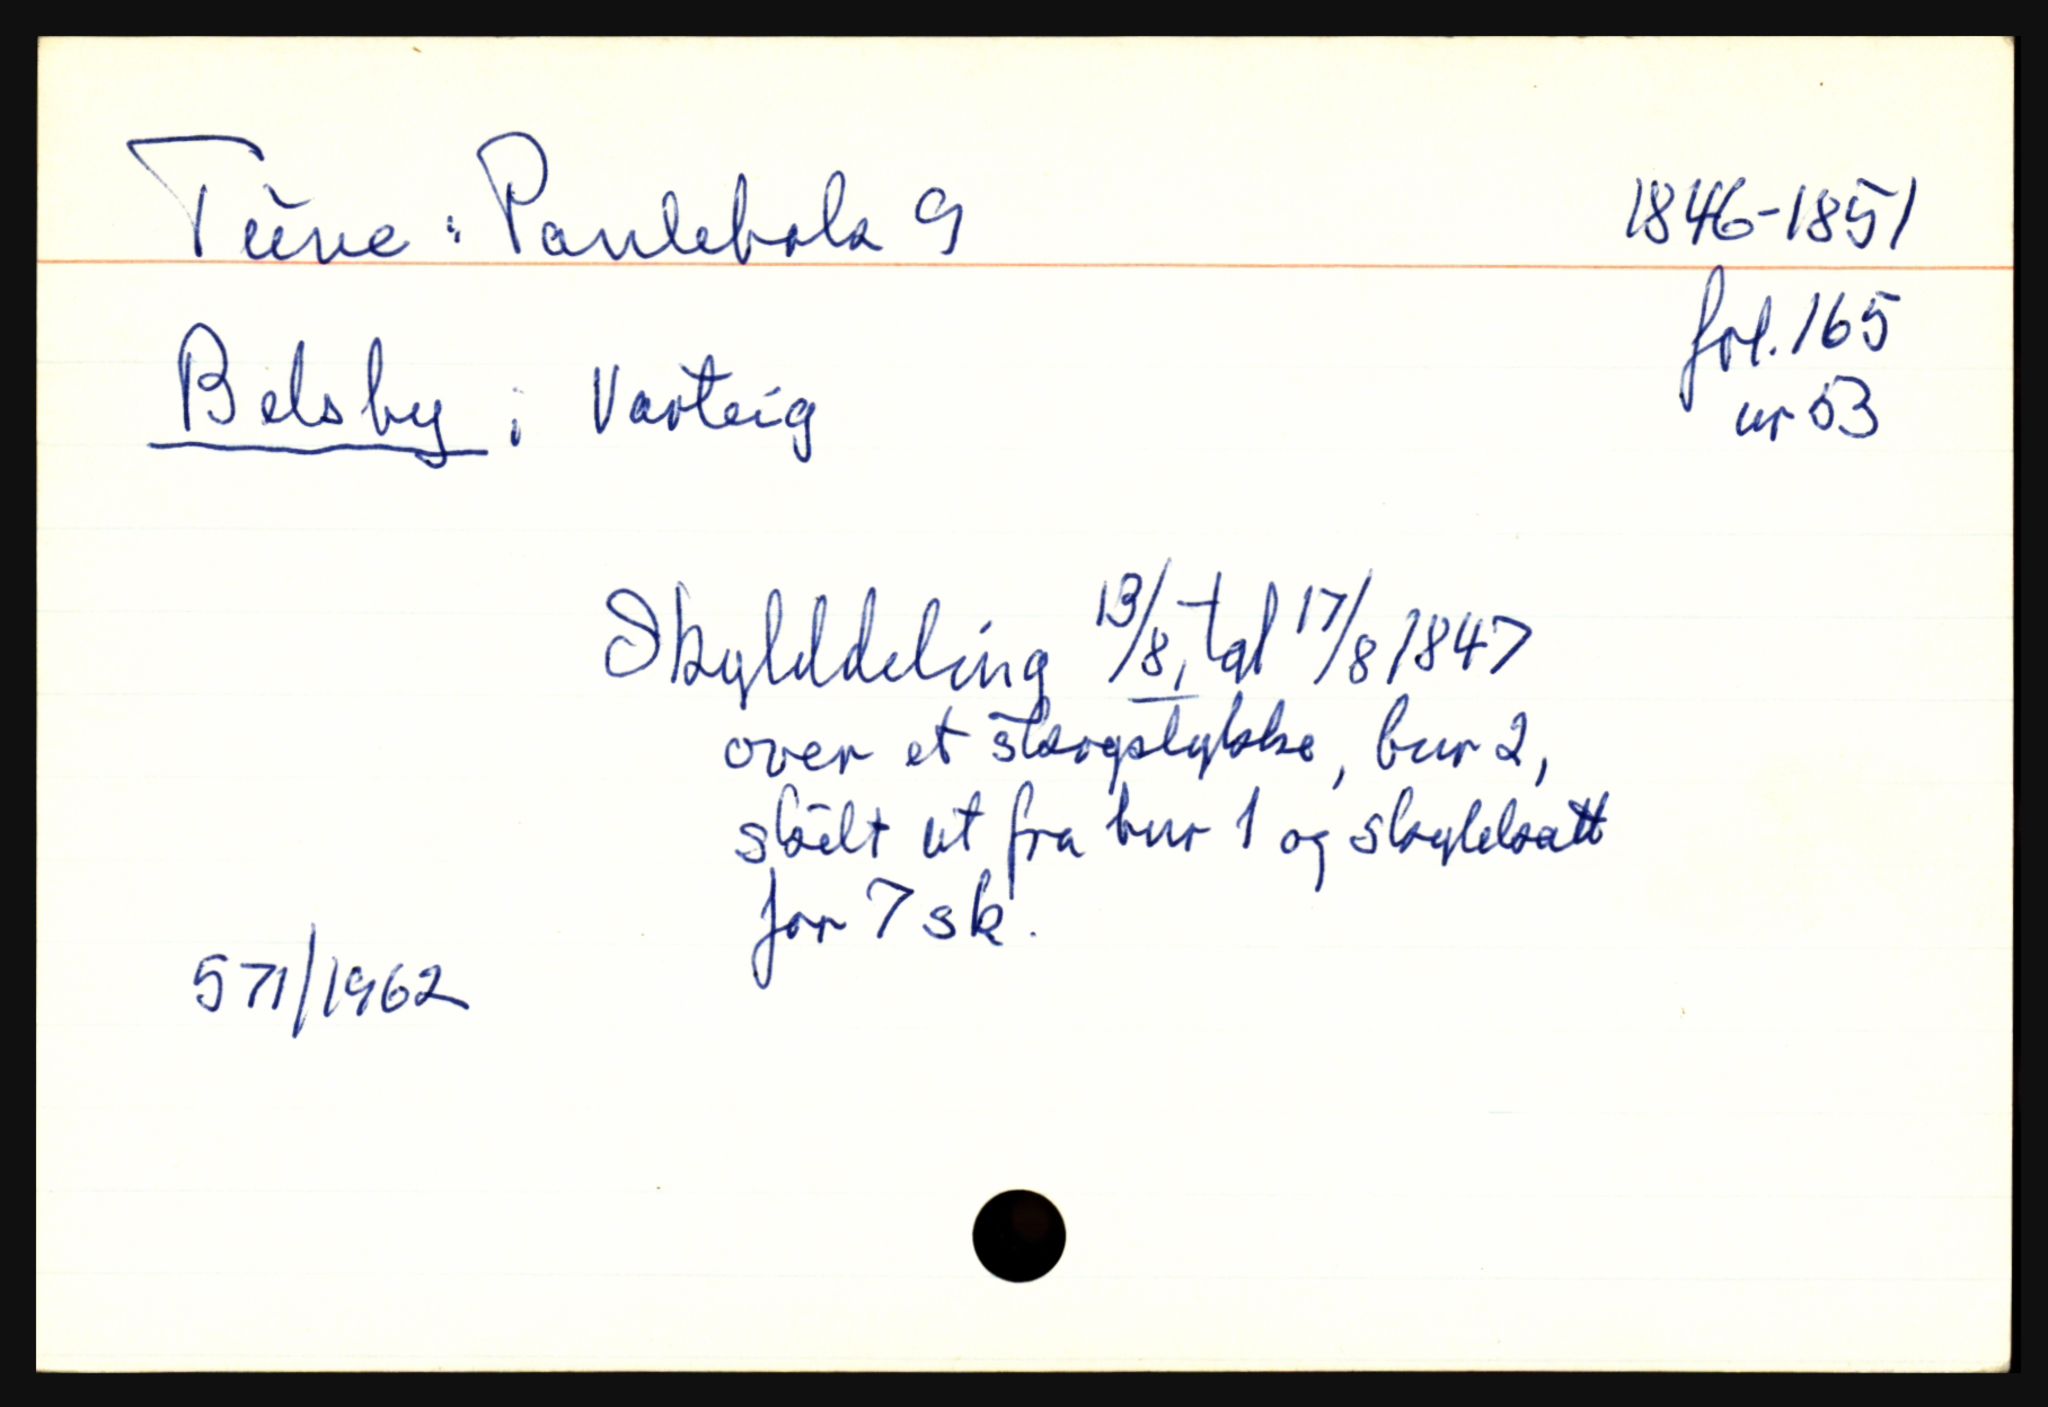 Tune: Pantebok 9
1846-1851
fol. 165
nr 53
Belsby i Varteig
Skylddeling 13/8, tgl 17/8 1847
over et skogstykke, bnr 2,
skilt ut fra bnr 1 og skyldsatt
for 7 sk.
571/1962